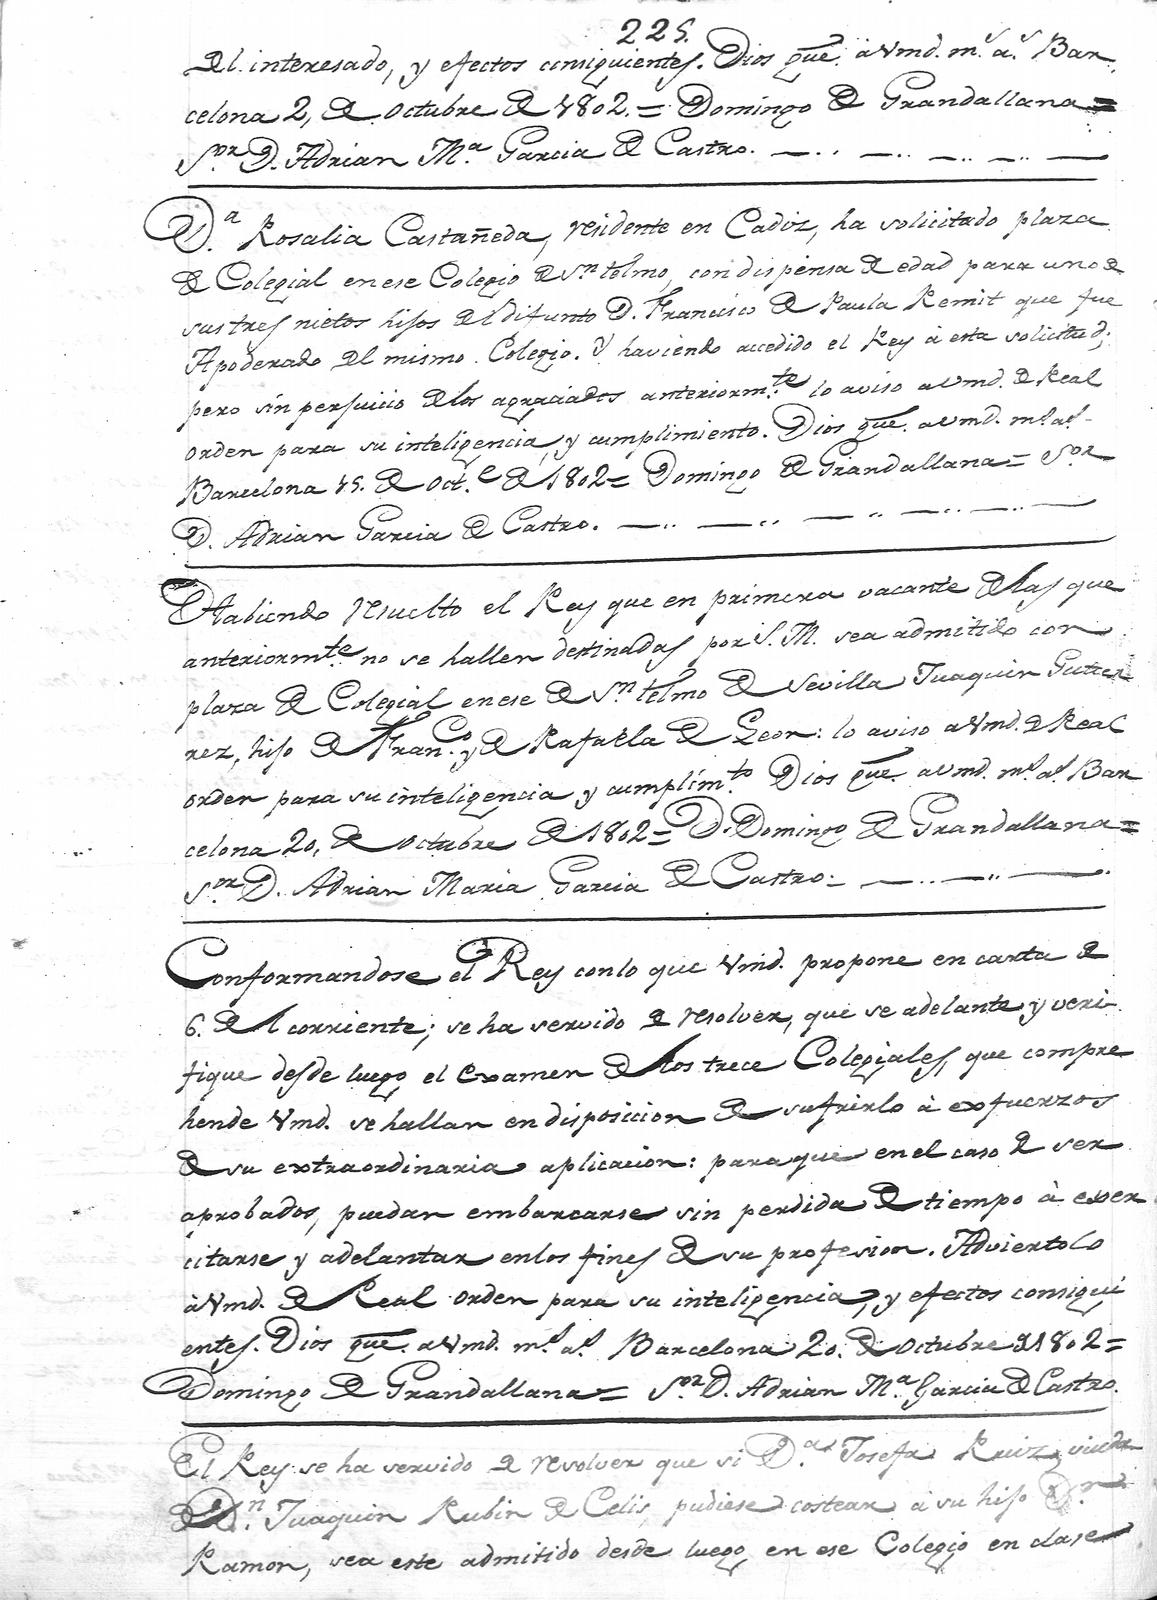 225.
del interesado, y efectos consiguientes. Dios gue. à Vmd. ms. as. Bar-
celona 2, de Octubre de 1802. = Domingo de Grandallana =
Sor. D. Adrian Ma. Garcia de Castro.
D.a Rosalia Castañeda, residente en Cadiz, ha solicitado plaza
de Colegial en ese Colegio de Sn. telmo, con dispensa de edad para uno de
sus tres nietos hijos del difunto D. Francisco de Paula Remit que fue
Apoderado del mismo Colegio. Y haviendo accedido el Rey à esta solicitud;
pero sin perjuicio de los agraciados anteriormte. lo aviso a Vmd. de Real
orden para su inteligencia, y cumplimiento. Dios gue. a Vmd. ms. as.
Barcelona 15. de Oct.e de 1802 = Domingo de Grandallana = Sor.
D. Adrian Garcia de Castro.
Habiendo resuelto el Rey que en primera vacante de las que
anteriormte. no se hallen destinadas por S. M. sea admitido con
plaza de Colegial en ese de Sn. telmo de Sevilla Juaquin Gutier
rez, hijo de Fran.co y de Rafaela de Leon: lo aviso a Vmd. de Real
orden para su inteligencia y cumplim.to Dios gue. a Vmd. ms. as. Bar
celona 20, de Octubre de 1802 = D. Domingo de Grandallana =
Sor. D. Adrian Maria Garcia de Castro.
Conformandose el Rey con lo que Vmd. propone en carta de
6. del corriente; se ha servido de resolver, que se adelante y veri-
fique desde luego el examen de los trece Colegiales, que compre
hende Vmd. se hallan en disposicion de sufrirlo à exfuerzos
de su extraordinaria aplicacion: para que en el caso de ser
aprobados, puedan embarcarse sin perdida de tiempo à exer
citarse y adelantar en los fines de su profesion. Adviertolo
à Vmd. de Real orden para su inteligencia, y efectos consigui
entes. Dios gue. a Vmd. ms. as. Barcelona 20. de Octubre de 1802 =
Domingo de Grandallana = Sor. D. Adrian M.a Garcia de Castro.
El Rey se ha servido de resolver que si D.a Josefa Ruiz, viuda
de Dn. Juaquin Rubin de Celis, pudiese costear à su hijo Dn.
Ramon, sea este admitido desde luego en ese Colegio en clase